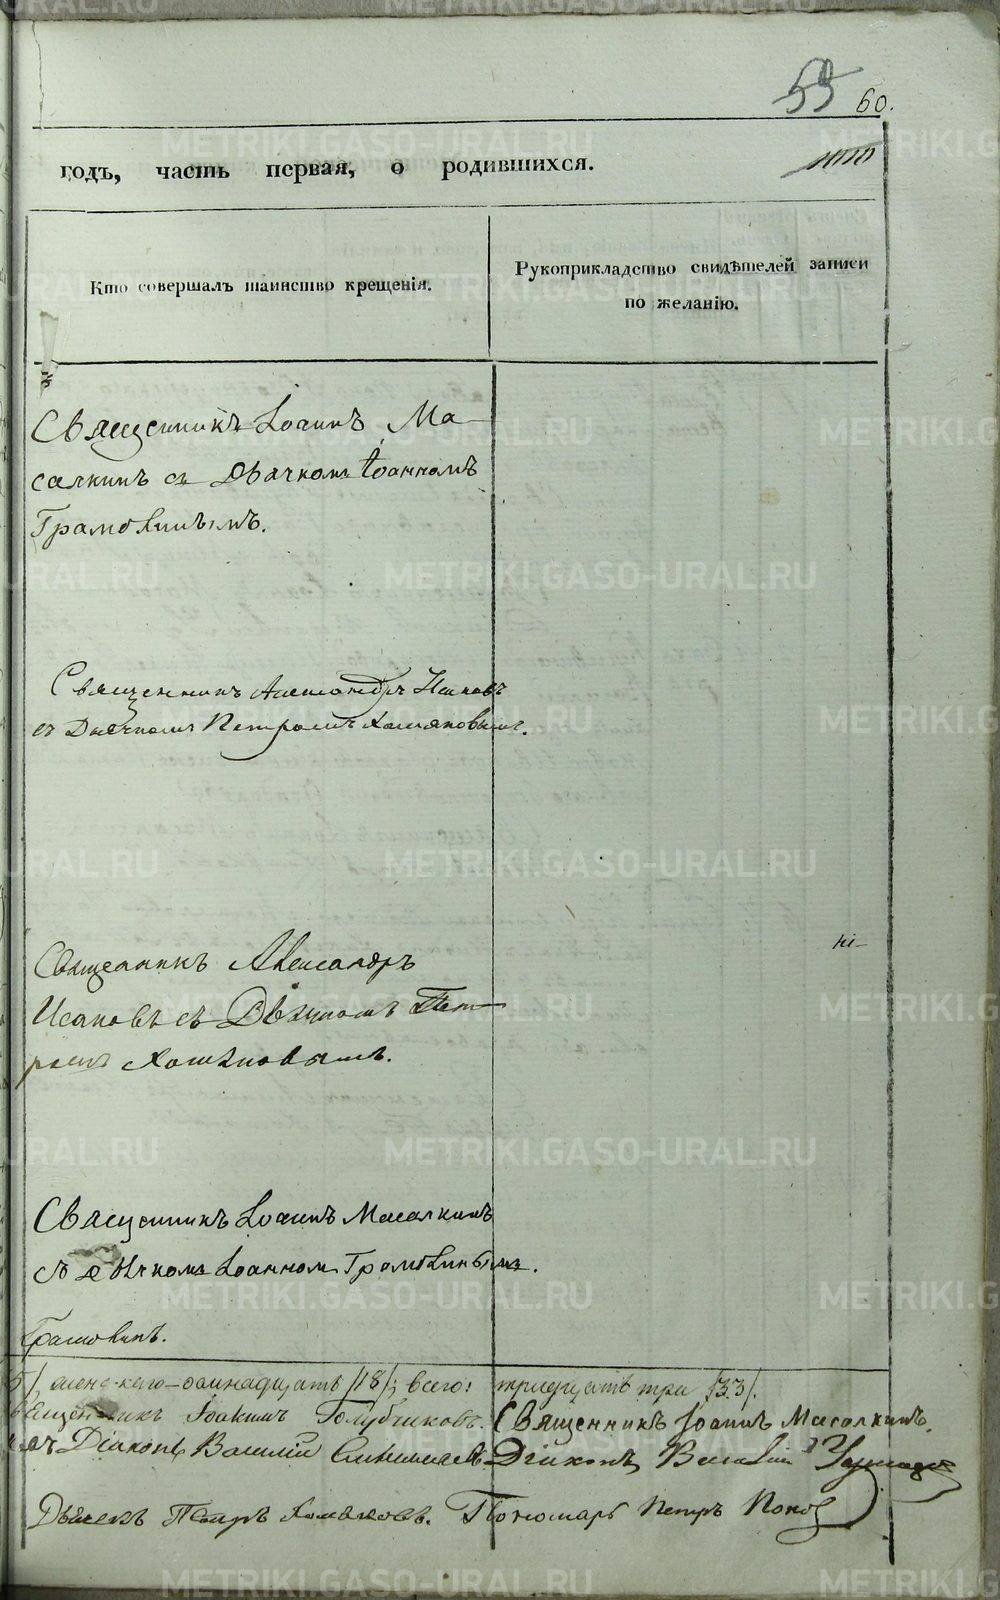 59 60.
годъ, часть первая, о родившихся.
Кто совершалъ таинство крещенія.
Рукоприкладство свидѣтелей записи
по желанію.
Священникъ Іоаннъ Ма-
салкинъ съ Дьячкомъ Іоанномъ
Грамовинымъ.
Священникъ Александръ Исаковъ
съ Дьячкомъ Петромъ Хомяковымъ.
Священникъ Александръ
Исаковъ съ Дьячкомъ Пет-
ромъ Хомяковымъ.
Священникъ Іоаннъ Масалкинъ
съ дьячкомъ Іоанномъ
Грамовинъ.
женскаго – осмнадцать /18/; всего: тридцать три /33/.
Священникъ Іоакимъ Голубчиковъ. Священникъ Іоаннъ Масалкинъ.
Діаконъ Василій Діаконъ Василій
Дьячекъ Петръ Хомяковъ. Пономарь Петръ Попов
METRIKI.GASO-URAL.RU